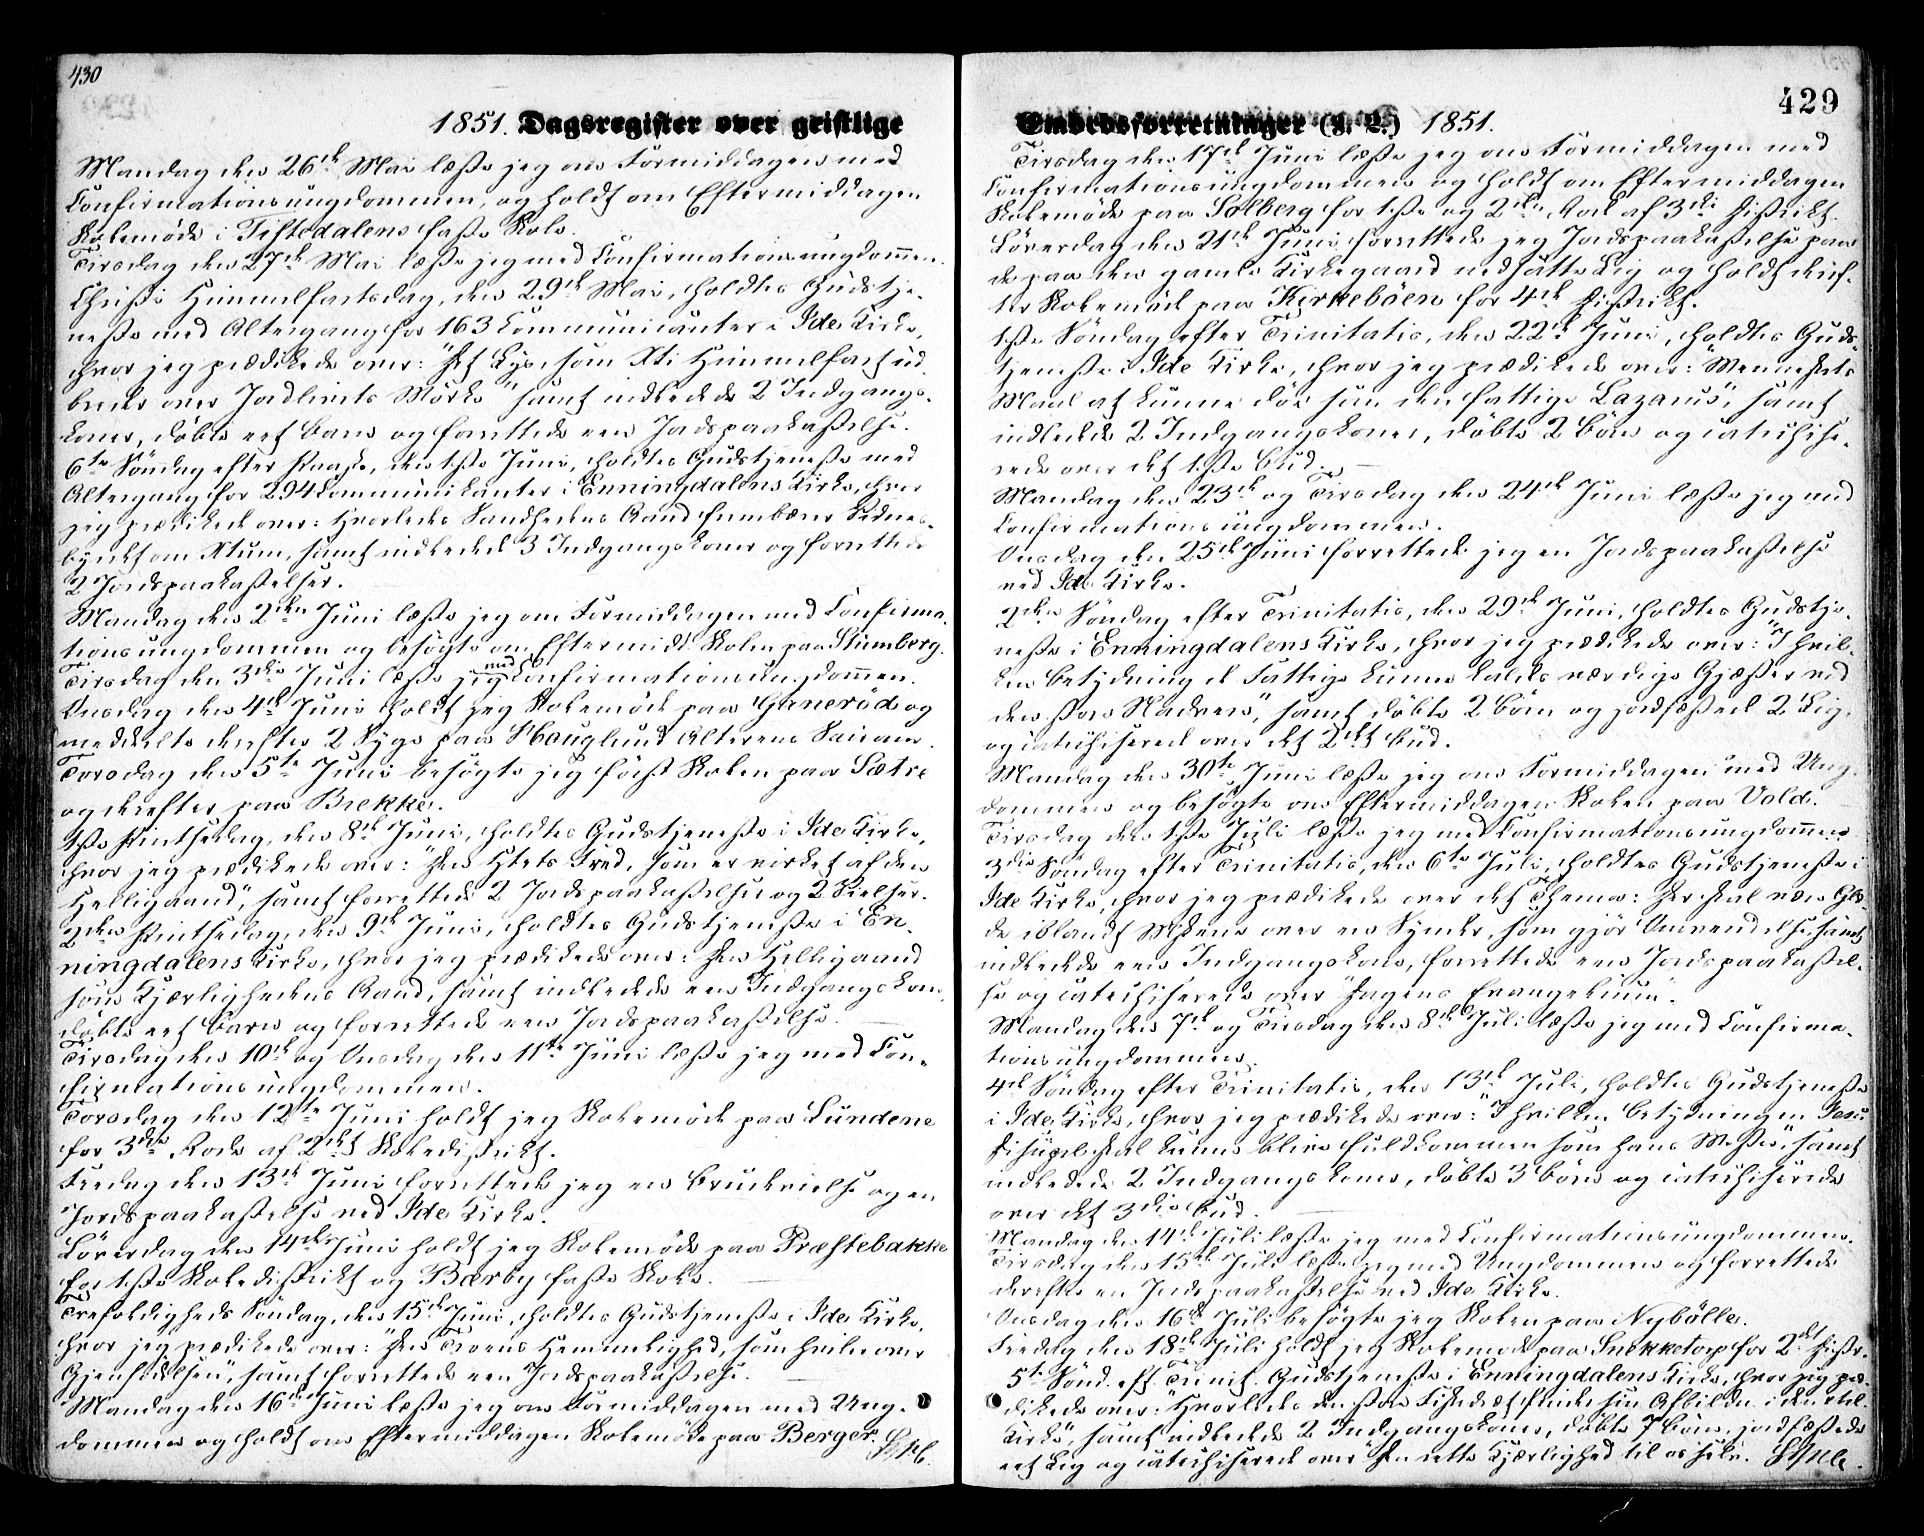 430
1851. Dagsregister over geistlige
Mandag den 26de Mai læste jeg om Formiddagen med
Confirmationsungdommen, og holdt om Eftermiddagen
Skolemöde i Tistedalens faste Skole.
Tirsdag den 27de Mai læste jeg med Confirmationsungdommen.
Christi Himmelfartsdag, den 29de Mai, holdtes Gudstje-
neste med Altergang for 163 Communicanter i Ide Kirke,
hvor jeg prædikede over: "Det Lys, som Xti Himmelfart ud-
breder over Jordlivets Mörke" samt indledede 2 Indgangs-
koner, döbte eet Barn og forrettede een Jordspaakastelse.
6te Söndag efter Paaske, den 1ste Juni, holdtes Gudstjeneste med
Altergang for 294 Kommunikanter i Enningdalens Kirke, hvor
jeg prædikede over: Hvorledes Sandhedens Aand frembærer Vidnes-
byrdet om Xtum, samt indledede 3 Indgangskoner og forrettede
2 Jordspaakastelser.
Mandag den 2den Juni læste jeg om Formiddagen med Confirma-
tionsungdommen og besögte om Eftermidd. Skolen paa Stumberg.
Tirsdag den 3die Juni læste jeg med Confirmationsungdommen.
Onsdag den 4de Juni holdt jeg Skolemöde paa Ganeröd og
meddelte derefter 2 Syge paa Hauglund Alterens Sacram.
Torsdag den 5te Juni besögte jeg först Skolen paa Sætre
og derefter paa Brekke.
1ste Pintsedag, den 8de Juni, holdtes Gudstjeneste i Ide Kirke,
hvor jeg prædikede over: "Den Xtets Fred, som er virket af den
Helligaand", samt forrettede 2 Jordspaakastelser og 2 Vielser.
2den Pintsedag, den 9de Juni, holdtes Gudstjeneste i En-
ningdalens Kirke, hvor jeg prædikede over: Den Helligaand
som Kjærlighedens Aand, samt indledede een Indgangskone,
döbte eet Barn og forrettede een Jordspaakastelse.
Tirsdag den 10de og Onsdag den 11te Juni læste jeg med Con-
firmationsungdommen.
Torsdag den 12te Juni holdt jeg Skolemöde paa Lundene
for 3die Rode af 2det Skoledistrikt.
Fredag den 13de Juni forrettede jeg en Brudevielse og en
Jordspaakastelse ved Ide Kirke.
Löverdag den 14de Juni holdt jeg Skolemöde paa Præstebakke
for 1ste Skoledistrikt og Bærby faste Skole.
Trefoldigheds Söndag, den 15de Juni, holdtes Gudstjeneste i Ide Kirke,
hvor jeg prædikede over: "Den Troens Hemmelighed, som hviler over
Gjenfödelsen", samt forrettede een Jordspaakastelse.
Mandag den 16de Juni læste jeg om Formiddagen med Ung-
dommen og holdt om Eftermiddagen Skolemöde paa Berger.
429
Embedsforretninger (f. L.) 1851.
Tirsdag den 17de Juni læste jeg om Formiddagen med
Confirmationsungdommen og holdt om Eftermiddagen
Skolemöde paa Solberg for 1ste og 2den Rode af 3die Distrikt.
Löverdag den 21de Juni forrettede jeg Jordspaakastelse paa
de paa den gamle Kirkegaard nedsatte Lig og holdt deref-
ter Skolemöde paa Kirkeböen for 4de Distrikt.
1ste Söndag efter Trinitatis, den 22de Juni, holdtes Guds-
tjeneste i Ide Kirke, hvor jeg prædikede over: "Menneskets
Maal at kunne döe som den fattige Lazarus", samt
indledede 2 Indgangskoner, döbte 2 Börn og catechise-
rede over det 1ste Bud.
Mandag den 23de og Tirsdag den 24de Juni læste jeg med
Confirmationsungdommen.
Onsdag den 25de Juni forrettede jeg en Jordspaakastelse
ved Ide Kirke.
2den Söndag efter Trinitatis, den 29de Juni, holdtes Gudstje-
neste i Enningdalens Kirke, hvor jeg prædikede over: "I hvil-
ken Betydning de Fattige kunne kaldes værdige Gjæster ved
den store Nadvere", samt döbte 2 Börn og jordfæstede 2 Lig,
og catechiserede over det 2det Bud.
Mandag den 30te Juni læste jeg om Formiddagen med Ung-
dommen og besögte om Eftermiddagen Skolen paa Vold.
Tirsdag den 1ste Juli læste jeg med Confirmationsungdommen.
3die Söndag efter Trinitatis, den 6te Juli, holdtes Gudstjeneste i
Ide Kirke, hvor jeg prædikede over det Thema: Der skal være Glæ-
de iblandt Mskene over en Synder, som gjör Omvendelse, samt
indledede een Indgangskone, forrettede een Jordspaakastel-
se og catechiserede over Dagens Evangelium.
Mandag den 7de og Tirsdag den 8de Juli læste jeg med Confirma-
tionsungdommen.
4de Söndag efter Trinitatis, den 13de Juli, holdtes Gudstjeneste
i Ide Kirke, hvor jeg prædikede over: "I hvilken Betydning en Jesu
Discipel skal kunne blive fuldkommen som hans Mester", samt
indledede 2 Indgangskoner, döbte 3 Börn og catechiserede
over det 3die Bud.
Mandag den 14de Juli læste jeg med Confirmationsungdommen.
Tirsdag den 15de Juli læste jeg med Ungdommen og forrettede
derefter en Jordspaakastelse ved Ide Kirke.
Onsdag den 16de Juli besögte jeg Skolen paa Nybölle.
Fredag den 18de Juli holdt jeg Skolemöde paa Snekketorp for 2det Distr.
5te Sönd. eft. Trinit. Gudstjeneste i Enningdalens Kirke, hvor jeg præ-
dikede over: "Hvorledes den store Fiskedræt finder sin Afbildn. i den xtel.
Kirke", samt indledede 2 Indgangskoner, döbte 7 Börn, jordfæstede
eet Lig og catechiserede over den rette Kjærlighed til os selv.